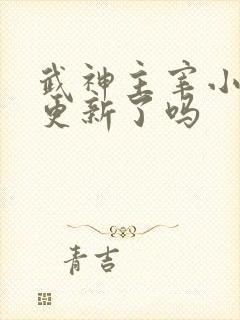 武神主宰小
更新了吗
青吉